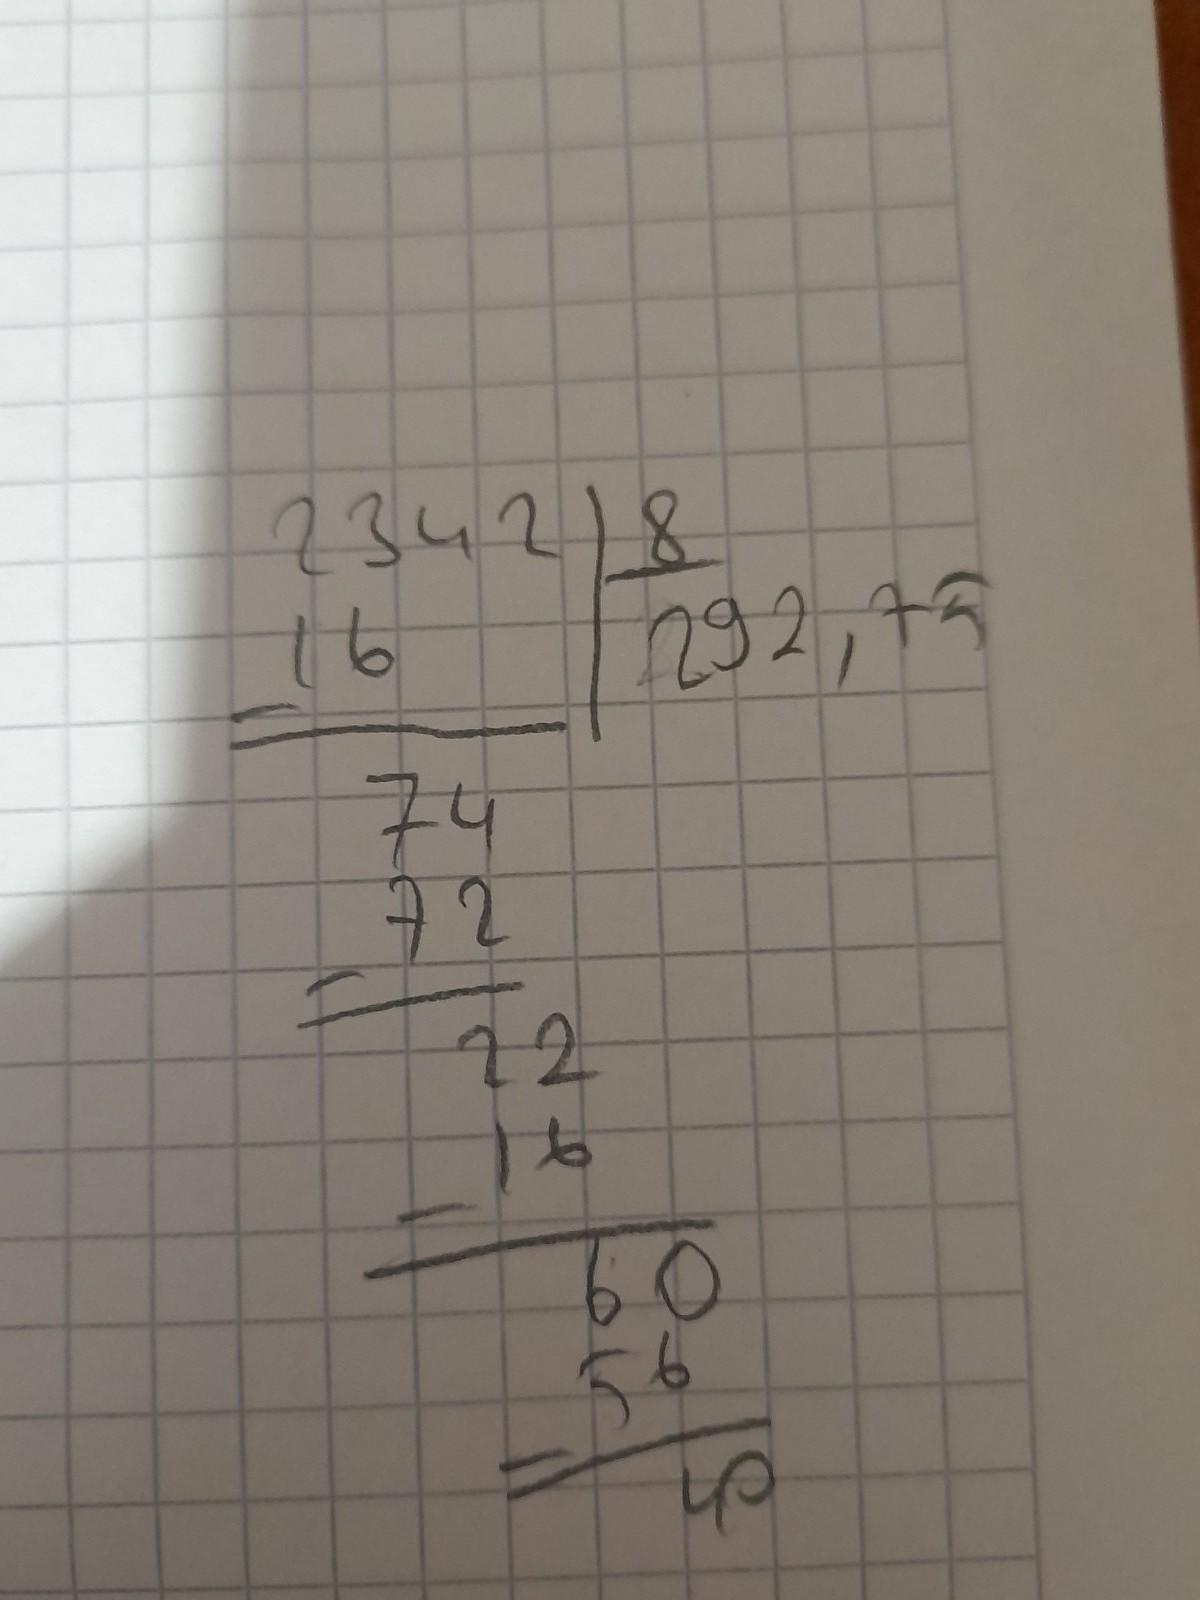 2342 8
16 292,75
74
72
22
16
60
56
40